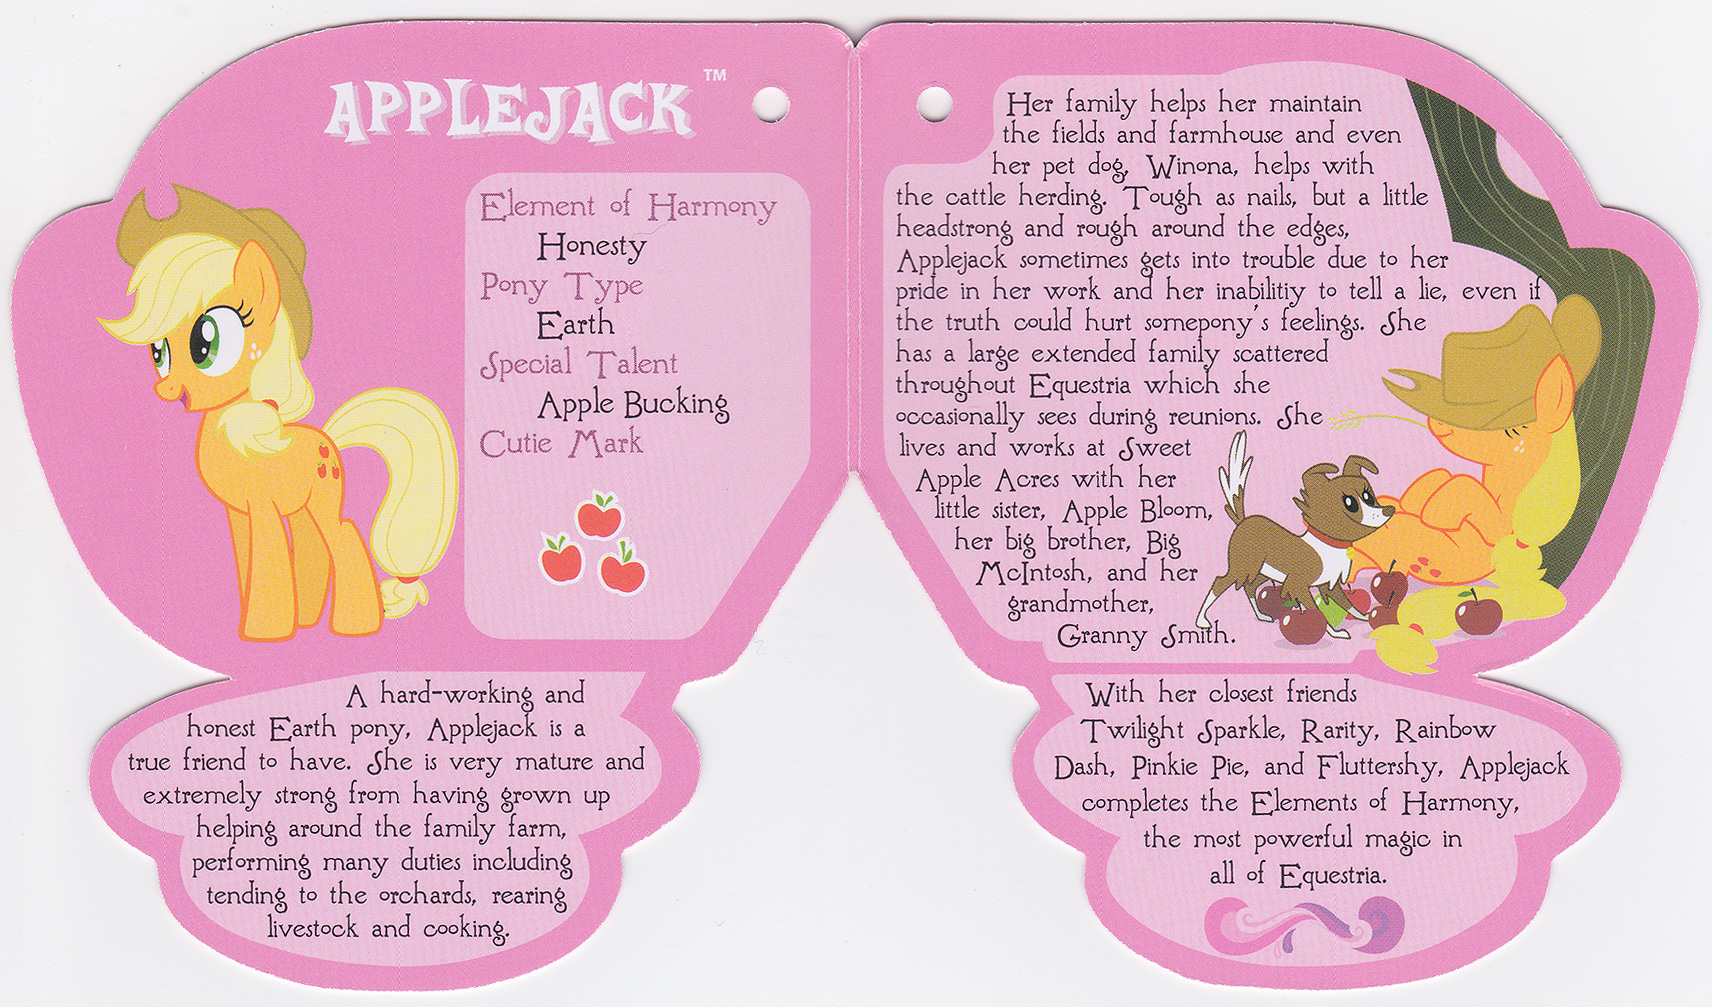 APPLEJACK™
Element of Harmony
Honesty
Pony Type
Earth
Special Talent
Apple Bucking
Cutie Mark
A hard-working and
honest Earth pony, Applejack is a
true friend to have. She is very mature and
extremely strong from having grown up
helping around the family farm,
performing many duties including
tending to the orchards, rearing
livestock and cooking.
Her family helps her maintain
the fields and farmhouse and even
her pet dog, Winona, helps with
the cattle herding. Tough as nails, but a little
headstrong and rough around the edges,
Applejack sometimes gets into trouble due to her
pride in her work and her inabilitiy to tell a lie, even if
the truth could hurt somepony's feelings. She
has a large extended family scattered
throughout Equestria which she
occasionally sees during reunions. She
lives and works at Sweet
Apple Acres with her
little sister, Apple Bloom,
her big brother, Big
McIntosh, and her
grandmother,
Granny Smith.
With her closest friends
Twilight Sparkle, Rarity, Rainbow
Dash, Pinkie Pie, and Fluttershy, Applejack
completes the Elements of Harmony,
the most powerful magic in
all of Equestria.